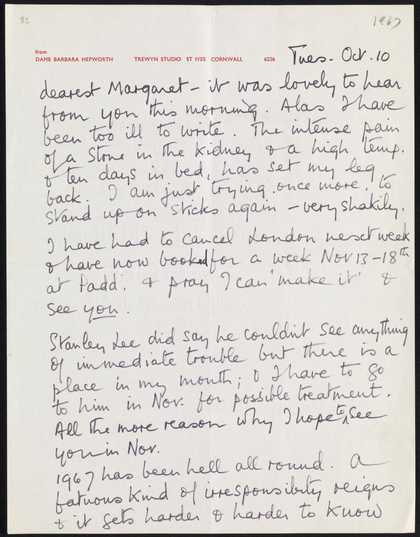 82
1967
from
DAME BARBARA HEPWORTH TREWYN STUDIO ST IVES CORNWALL 6226
Tues. Oct. 10
dearest Margaret – it was lovely to hear
from you this morning. Alas I have
been too ill to write. The intense pain
of a stone in the kidney & a high temp.
& ten days in bed, has set my leg
back. I am just trying, once more, to
stand up on sticks again – very shakily.
I have had to cancel London next week
& have now booked for a week Nov 13–18th
at Padd: & pray I can 'make it' &
see you.
Stanley Lee did say he couldn't see anything
of immediate trouble but there is a
place in my mouth; & I have to go
to him in Nov. for possible treatment.
All the more reason why I hope to see
you in Nov.
1967 has been hell all round. A
fatuous kind of irresponsibility reigns
& it gets harder & harder to know